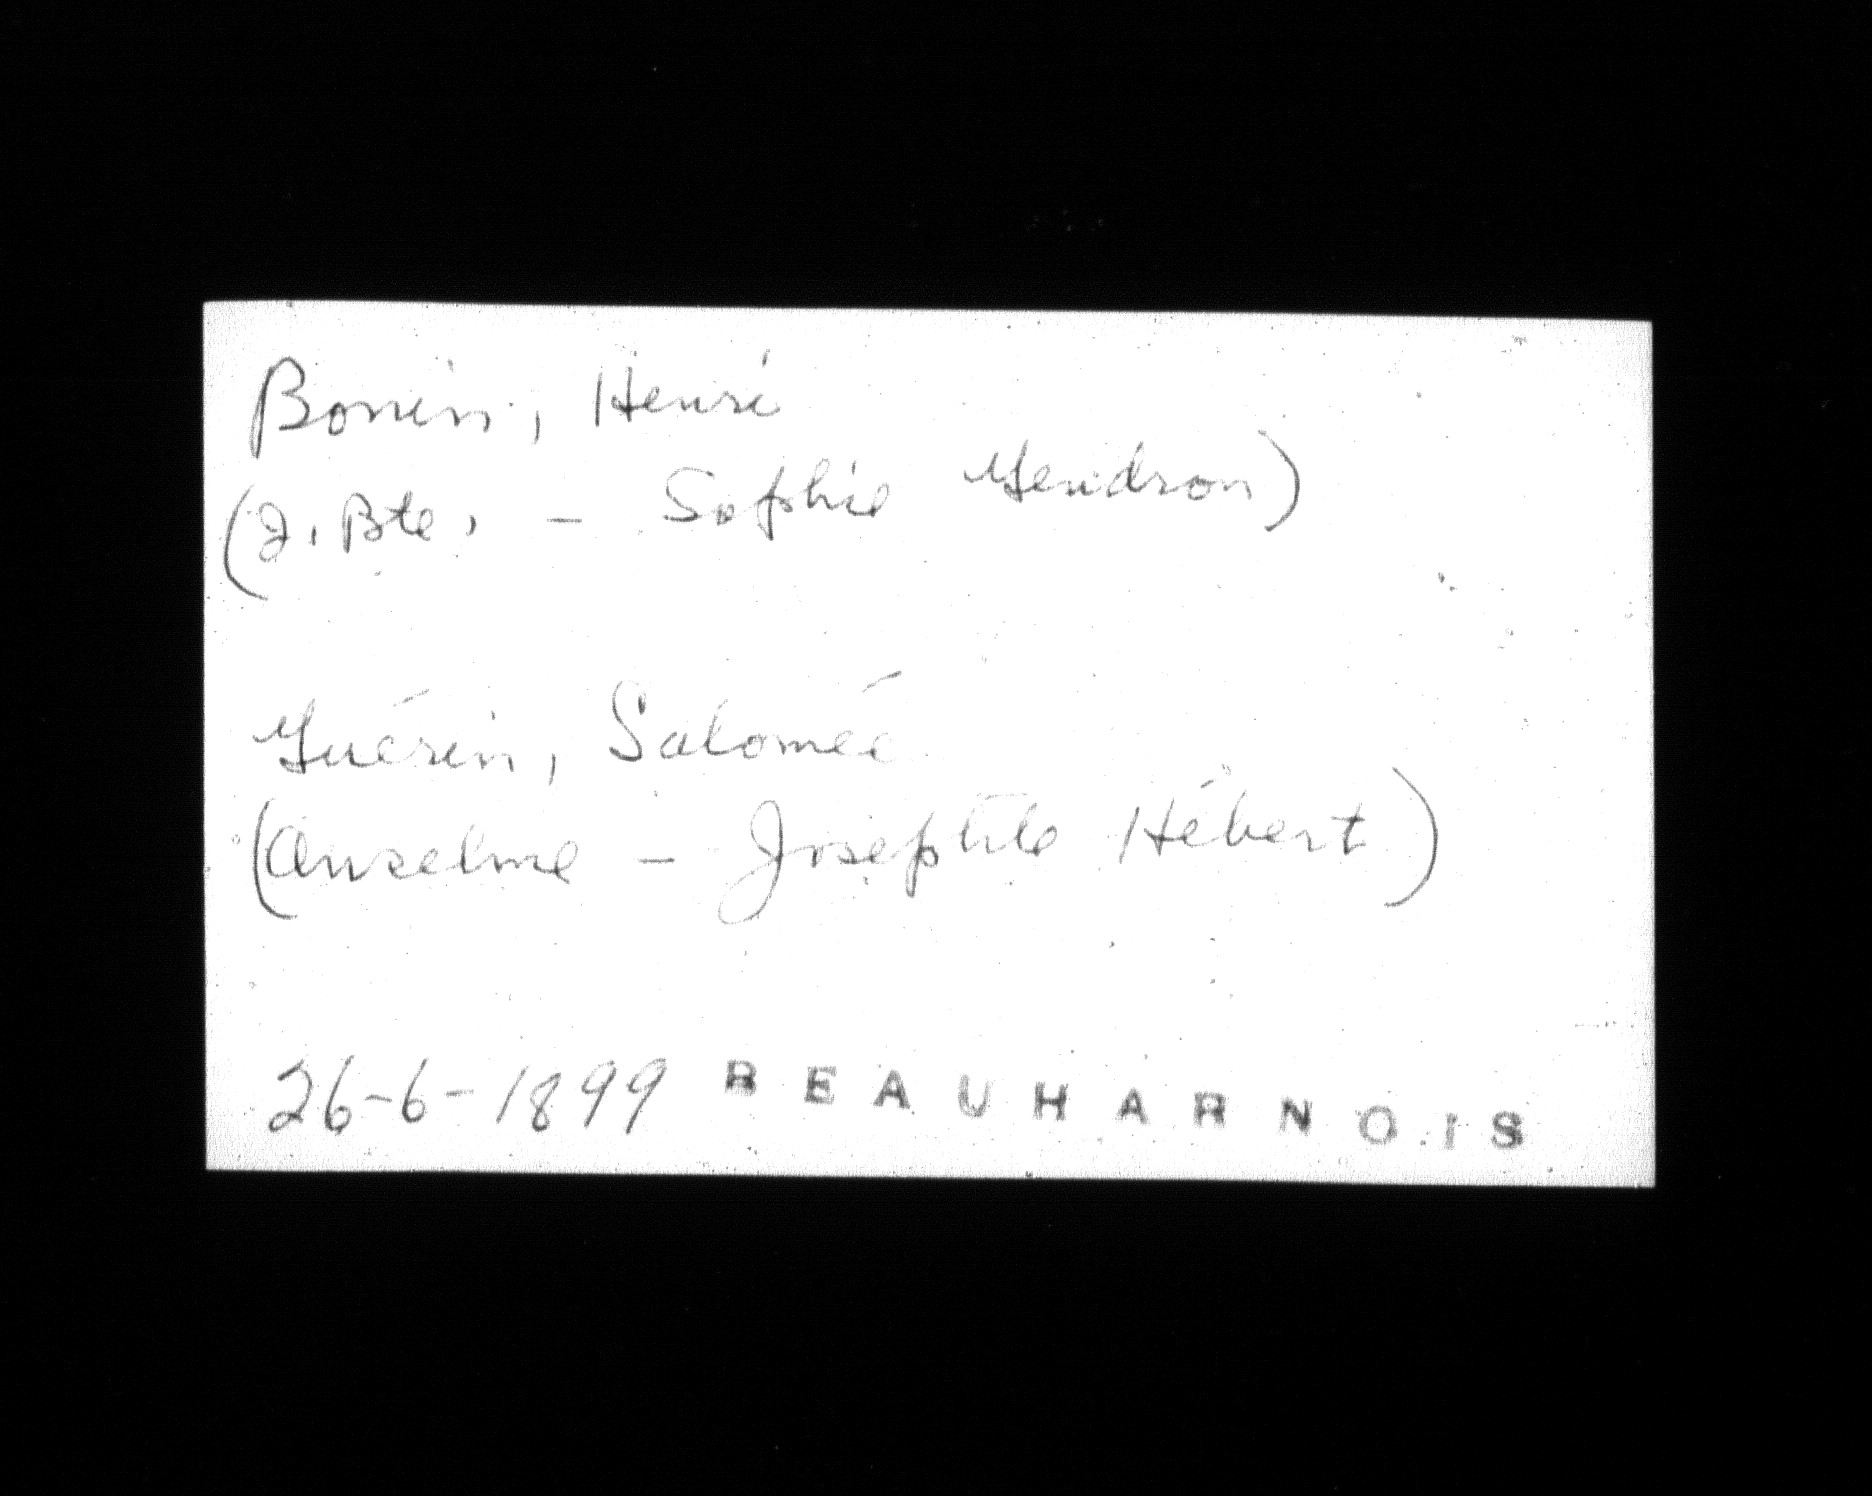 Bonin, Henri
(J. Bte. - Sophie Gendron)
Guérin, Salomée
(Anselme - Josephte Hébert)
26-6-1899 BEAUHARNOIS